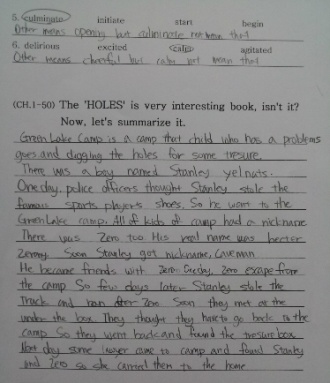 5. culminate initiate start begin
Other means opening but culminate not mean that
6. delirious excited calm agitated
Other means cheerful but calm not mean that
(CH.1-50) The 'HOLES' is very interesting book, isn't it?
Now, let's summarize it.
Green Lake Camp is a camp that child who has a problems
goes and digging the holes for some tresure.
There was a boy named Stanley yelnats.
One day, police officers thought Stanley stole the
famous sports player's shoes. So he went to the
Green Lake camp. All of kids of camp had a nickname
There was Zero too. His real name was hector
Zerony. Soon Stanley got nickname, Caveman
He became friends with Zero. One day, Zero escape from
the camp So few days later Stanley stole the
truck and ran after Zero Soon they met at the
under the boat. They thought they have to go back to the
camp So they went back and found the tresure box
Next day some lawyer came to camp and found Stanley
and Zero so she carried them to the home